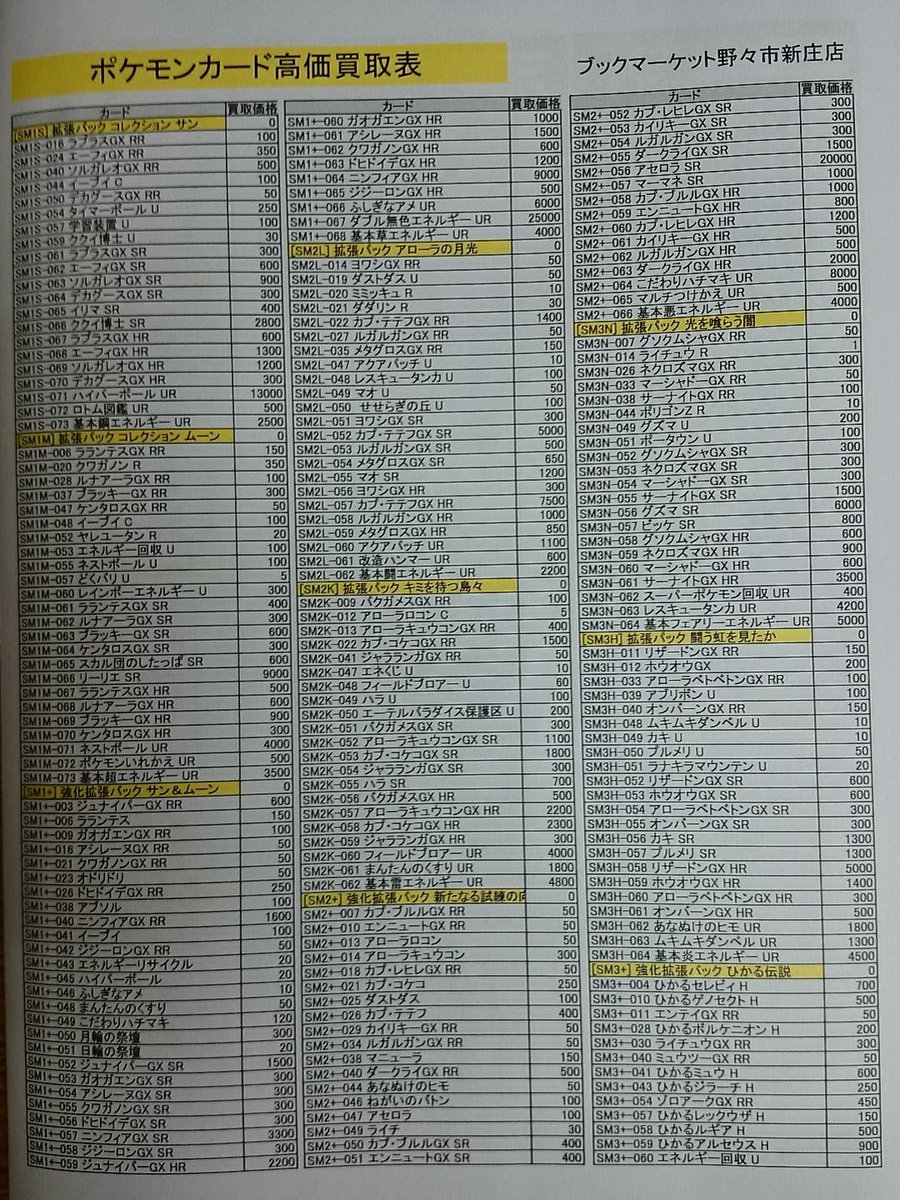 ポケモンカード高価買取表
ブックマーケット野々市新庄店
カード 買取価格
[SM1S] 拡張パック コレクション サン 0
SM1S-016 ラプラスGX RR 100
SM1S-024 エーフィGX RR 350
SM1S-040 ソルガレオGX RR 500
SM1S-044 イーブイ C 100
SM1S-050 デカグースGX RR 50
SM1S-054 タイマーボール U 250
SM1S-057 学習装置 U 100
SM1S-059 ククイ博士 U 30
SM1S-061 ラプラスGX SR 300
SM1S-062 エーフィGX SR 600
SM1S-063 ソルガレオGX SR 900
SM1S-064 デカグースGX SR 300
SM1S-065 イリマ SR 400
SM1S-066 ククイ博士 SR 2800
SM1S-067 ラプラスGX HR 600
SM1S-068 エーフィGX HR 1300
SM1S-069 ソルガレオGX HR 1200
SM1S-070 デカグースGX HR 300
SM1S-071 ハイパーボール UR 13000
SM1S-072 ロトム図鑑 UR 500
SM1S-073 基本鋼エネルギー UR 2500
[SM1M] 拡張パック コレクション ムーン 0
SM1M-006 ラランテスGX RR 150
SM1M-020 クワガノン R 350
SM1M-028 ルナアーラGX RR 100
SM1M-037 ブラッキーGX RR 300
SM1M-047 ケンタロスGX RR 50
SM1M-048 イーブイ C 100
SM1M-052 ヤレユータン R 20
SM1M-053 エネルギー回収 U 100
SM1M-055 ネストボール U 100
SM1M-057 どくバリ U 5
SM1M-060 レインボーエネルギー U 300
SM1M-061 ラランテスGX SR 400
SM1M-062 ルナアーラGX SR 300
SM1M-063 ブラッキーGX SR 600
SM1M-064 ケンタロスGX SR 300
SM1M-065 スカル団のしたっぱ SR 600
SM1M-066 リーリエ SR 9000
SM1M-067 ラランテスGX HR 500
SM1M-068 ルナアーラGX HR 600
SM1M-069 ブラッキーGX HR 900
SM1M-070 ケンタロスGX HR 300
SM1M-071 ネストボール UR 4000
SM1M-072 ポケモンいれかえ UR 500
SM1M-073 基本超エネルギー UR 3500
[SM1+] 強化拡張パック サン＆ムーン 0
SM1+-003 ジュナイパーGX RR 600
SM1+-006 ラランテス 150
SM1+-009 ガオガエンGX RR 100
SM1+-016 アシレーヌGX RR 50
SM1+-021 クワガノンGX RR 50
SM1+-023 オドリドリ 50
SM1+-026 ドヒドイデGX RR 250
SM1+-038 アブソル 100
SM1+-040 ニンフィアGX RR 1600
SM1+-041 イーブイ 100
SM1+-042 ジジーロンGX RR 50
SM1+-043 エネルギーリサイクル 20
SM1+-045 ハイパーボール 20
SM1+-046 ふしぎなアメ 10
SM1+-048 まんたんのくすり 50
SM1+-049 こだわりハチマキ 120
SM1+-050 月輪の祭壇 300
SM1+-051 日輪の祭壇 20
SM1+-052 ジュナイパーGX SR 1500
SM1+-053 ガオガエンGX SR 300
SM1+-054 アシレーヌGX SR 300
SM1+-055 クワガノンGX SR 300
SM1+-056 ドヒドイデGX SR 300
SM1+-057 ニンフィアGX SR 3300
SM1+-058 ジジーロンGX SR 300
SM1+-059 ジュナイパーGX HR 2200
カード 買取価格
SM1+-060 ガオガエンGX HR 1000
SM1+-061 アシレーヌGX HR 1500
SM1+-062 クワガノンGX HR 600
SM1+-063 ドヒドイデGX HR 1200
SM1+-064 ニンフィアGX HR 9000
SM1+-065 ジジーロンGX HR 500
SM1+-066 ふしぎなアメ UR 6000
SM1+-067 ダブル無色エネルギー UR 25000
SM1+-068 基本草エネルギー UR 4000
[SM2L] 拡張パック アローラの月光 0
SM2L-014 ヨワシGX RR 50
SM2L-019 ダストダス U 50
SM2L-020 ミミッキュ R 10
SM2L-021 ダダリン R 30
SM2L-022 カプ・テテフGX RR 1400
SM2L-027 ルガルガンGX RR 50
SM2L-035 メタグロスGX RR 150
SM2L-047 アクアパッチ U 10
SM2L-048 レスキュータンカ U 100
SM2L-049 マオ U 50
SM2L-050 せせらぎの丘 U 100
SM2L-051 ヨワシGX SR 300
SM2L-052 カプ・テテフGX SR 5000
SM2L-053 ルガルガンGX SR 500
SM2L-054 メタグロスGX SR 650
SM2L-055 マオ SR 1200
SM2L-056 ヨワシGX HR 300
SM2L-057 カプ・テテフGX HR 7500
SM2L-058 ルガルガンGX HR 1000
SM2L-059 メタグロスGX HR 850
SM2L-060 アクアパッチ UR 1100
SM2L-061 改造ハンマー UR 600
SM2L-062 基本闘エネルギー UR 2200
[SM2K] 拡張パック キミを待つ島々 0
SM2K-009 バクガメスGX RR 100
SM2K-012 アローラロコン C 5
SM2K-013 アローラキュウコンGX RR 400
SM2K-022 カプ・コケコGX RR 1500
SM2K-041 ジャラランガGX RR 50
SM2K-047 エネくじ U 10
SM2K-048 フィールドブロアー U 60
SM2K-049 ハラ U 100
SM2K-050 エーテルパラダイス保護区 U 200
SM2K-051 バクガメスGX SR 300
SM2K-052 アローラキュウコンGX SR 1100
SM2K-053 カプ・コケコGX SR 1800
SM2K-054 ジャラランガGX SR 300
SM2K-055 ハラ SR 700
SM2K-056 バクガメスGX HR 500
SM2K-057 アローラキュウコンGX HR 2200
SM2K-058 カプ・コケコGX HR 2300
SM2K-059 ジャラランガGX HR 300
SM2K-060 フィールドブロアー UR 4000
SM2K-061 まんたんのくすり UR 1800
SM2K-062 基本雷エネルギー UR 4800
[SM2+] 強化拡張パック 新たなる試練の向 0
SM2+-007 カプ・ブルルGX RR 50
SM2+-010 エンニュートGX RR 50
SM2+-013 アローラロコン 50
SM2+-014 アローラキュウコン 300
SM2+-018 カプ・レヒレGX RR 50
SM2+-021 カプ・コケコ 250
SM2+-025 ダストダス 100
SM2+-026 カプ・テテフ 400
SM2+-029 カイリキーGX RR 50
SM2+-034 ルガルガンGX RR 50
SM2+-038 マニューラ 150
SM2+-040 ダークライGX RR 500
SM2+-044 あなぬけのヒモ 50
SM2+-046 ねがいのバトン 100
SM2+-047 アセロラ 100
SM2+-049 ライチ 50
SM2+-050 カプ・ブルルGX SR 400
SM2+-051 エンニュートGX SR 400
カード 買取価格
SM2+-052 カプ・レヒレGX SR 300
SM2+-053 カイリキーGX SR 300
SM2+-054 ルガルガンGX SR 300
SM2+-055 ダークライGX SR 1500
SM2+-056 アセロラ SR 20000
SM2+-057 マーマネ SR 1000
SM2+-058 カプ・ブルルGX HR 1000
SM2+-059 エンニュートGX HR 800
SM2+-060 カプ・レヒレGX HR 1200
SM2+-061 カイリキーGX HR 500
SM2+-062 ルガルガンGX HR 500
SM2+-063 ダークライGX HR 2000
SM2+-064 こだわりハチマキ UR 8000
SM2+-065 マルチつけかえ UR 500
SM2+-066 基本悪エネルギー UR 4000
[SM3N] 拡張パック 光を喰らう闇 0
SM3N-007 グソクムシャGX RR 50
SM3N-014 ライチュウ R 1
SM3N-026 ネクロズマGX RR 300
SM3N-033 マーシャドーGX RR 50
SM3N-038 サーナイトGX RR 100
SM3N-044 ポリゴンZ R 10
SM3N-049 グズマ U 200
SM3N-051 ポータウン U 100
SM3N-052 グソクムシャGX SR 300
SM3N-053 ネクロズマGX SR 500
SM3N-054 マーシャドーGX SR 300
SM3N-055 サーナイトGX SR 1500
SM3N-056 グズマ SR 6000
SM3N-057 ビッケ SR 800
SM3N-058 グソクムシャGX HR 600
SM3N-059 ネクロズマGX HR 900
SM3N-060 マーシャドーGX HR 600
SM3N-061 サーナイトGX HR 3500
SM3N-062 スーパーポケモン回収 UR 400
SM3N-063 レスキュータンカ UR 4200
SM3N-064 基本フェアリーエネルギー UR 5000
[SM3H] 拡張パック 闘う虹を見たか 0
SM3H-011 リザードンGX RR 150
SM3H-012 ホウオウGX 200
SM3H-033 アローラベトベトンGX RR 100
SM3H-039 アブリボン U 100
SM3H-040 オンバーンGX RR 150
SM3H-048 ムキムキダンベル U 10
SM3H-049 カキ U 10
SM3H-050 プルメリ U 50
SM3H-051 ラナキラマウンテン U 20
SM3H-052 リザードンGX SR 600
SM3H-053 ホウオウGX SR 600
SM3H-054 アローラベトベトンGX SR 300
SM3H-055 オンバーンGX SR 300
SM3H-056 カキ SR 1300
SM3H-057 プルメリ SR 1300
SM3H-058 リザードンGX HR 5000
SM3H-059 ホウオウGX HR 1400
SM3H-060 アローラベトベトンGX HR 300
SM3H-061 オンバーンGX HR 500
SM3H-062 あなぬけのヒモ UR 1800
SM3H-063 ムキムキダンベル UR 1300
SM3H-064 基本炎エネルギー UR 4500
[SM3+] 強化拡張パック ひかる伝説 0
SM3+-004 ひかるセレビィ H 700
SM3+-010 ひかるゲノセクト H 500
SM3+-011 エンテイGX RR 50
SM3+-028 ひかるボルケニオン H 200
SM3+-030 ライチュウGX RR 400
SM3+-040 ミュウツーGX RR 50
SM3+-041 ひかるミュウ H 600
SM3+-043 ひかるジラーチ H 250
SM3+-054 ゾロアークGX RR 450
SM3+-057 ひかるレックウザ H 150
SM3+-058 ひかるルギア H 500
SM3+-059 ひかるアルセウス H 900
SM3+-060 エネルギー回収 U 100